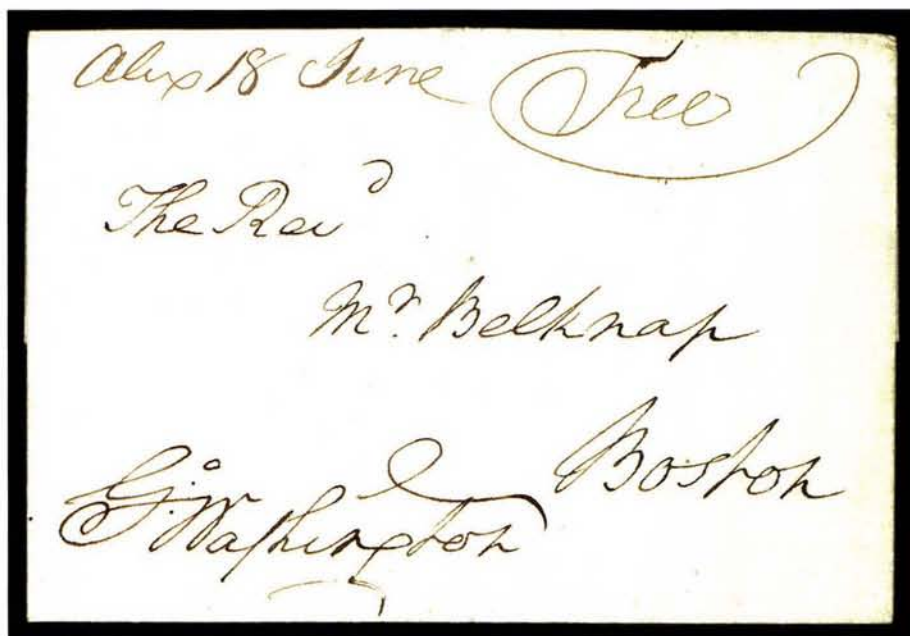 Alex 18 June Free
The Revd
Mr. Belknap
Boston
Go: Washington